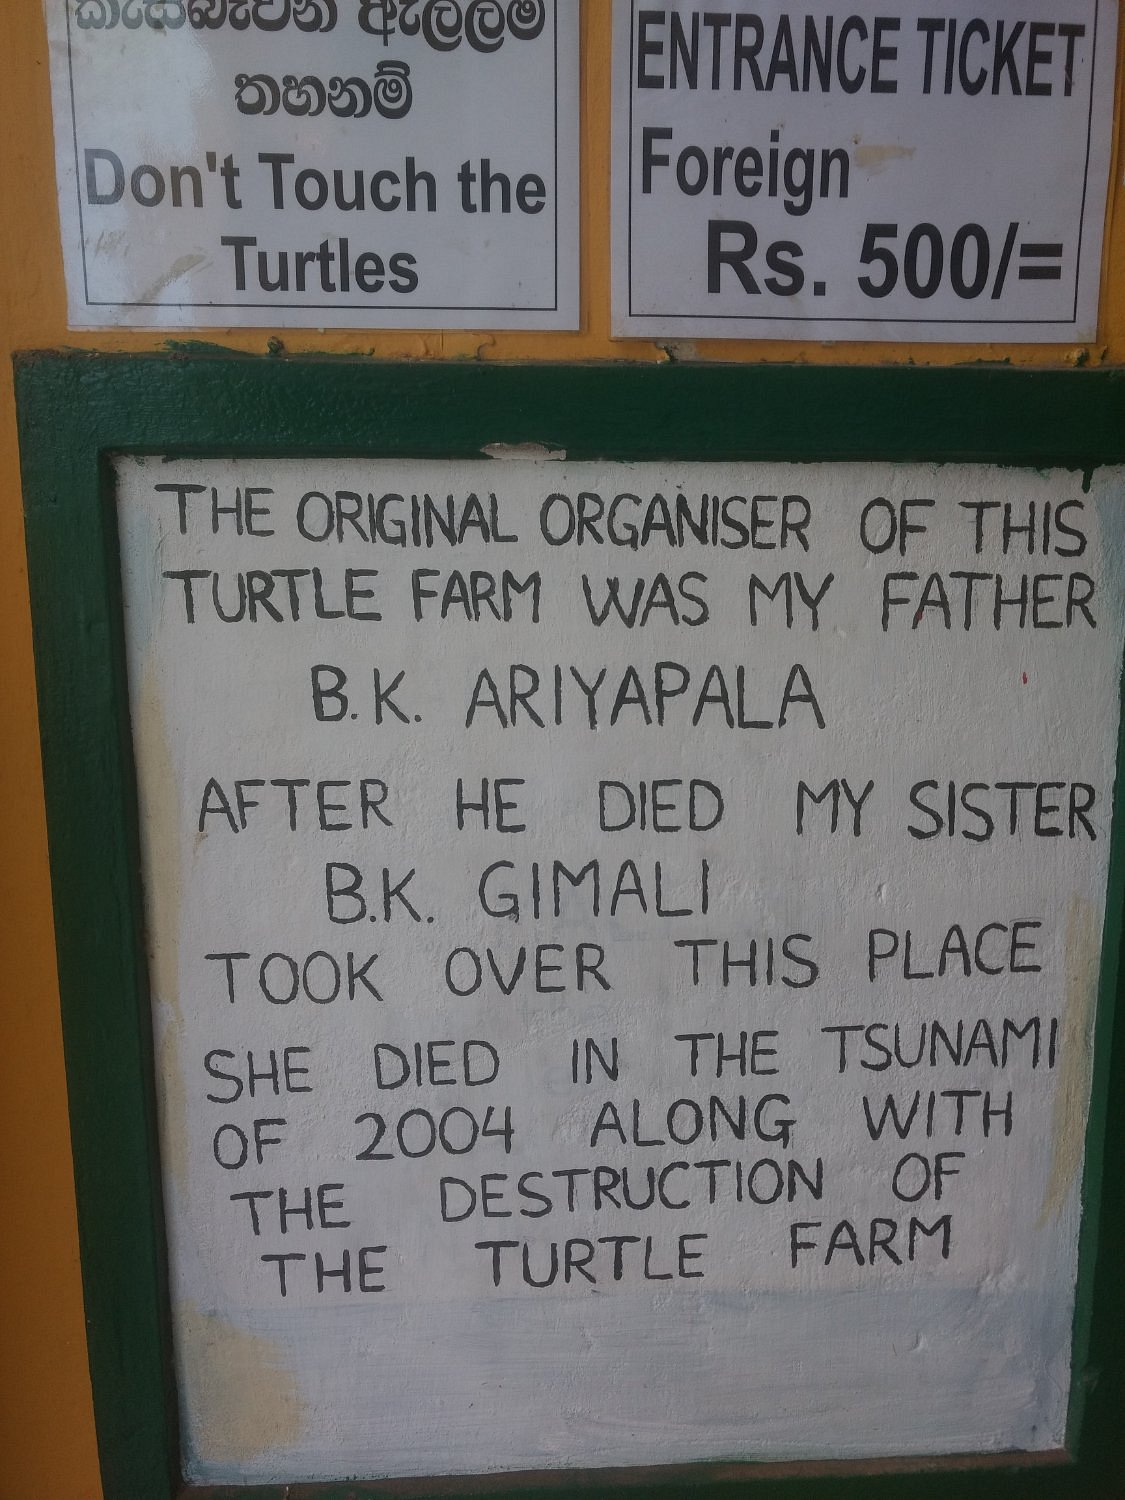 කැස්බෑවන් ඇල්ලීම
තහනම්
Don't Touch the
Turtles
ENTRANCE TICKET
Foreign
Rs. 500/=
THE ORIGINAL ORGANISER OF THIS
TURTLE FARM WAS MY FATHER
B.K. ARIYAPALA
AFTER HE DIED MY SISTER
B.K. GIMALI
TOOK OVER THIS PLACE
SHE DIED IN THE TSUNAMI
OF 2004 ALONG WITH
THE DESTRUCTION OF
THE TURTLE FARM